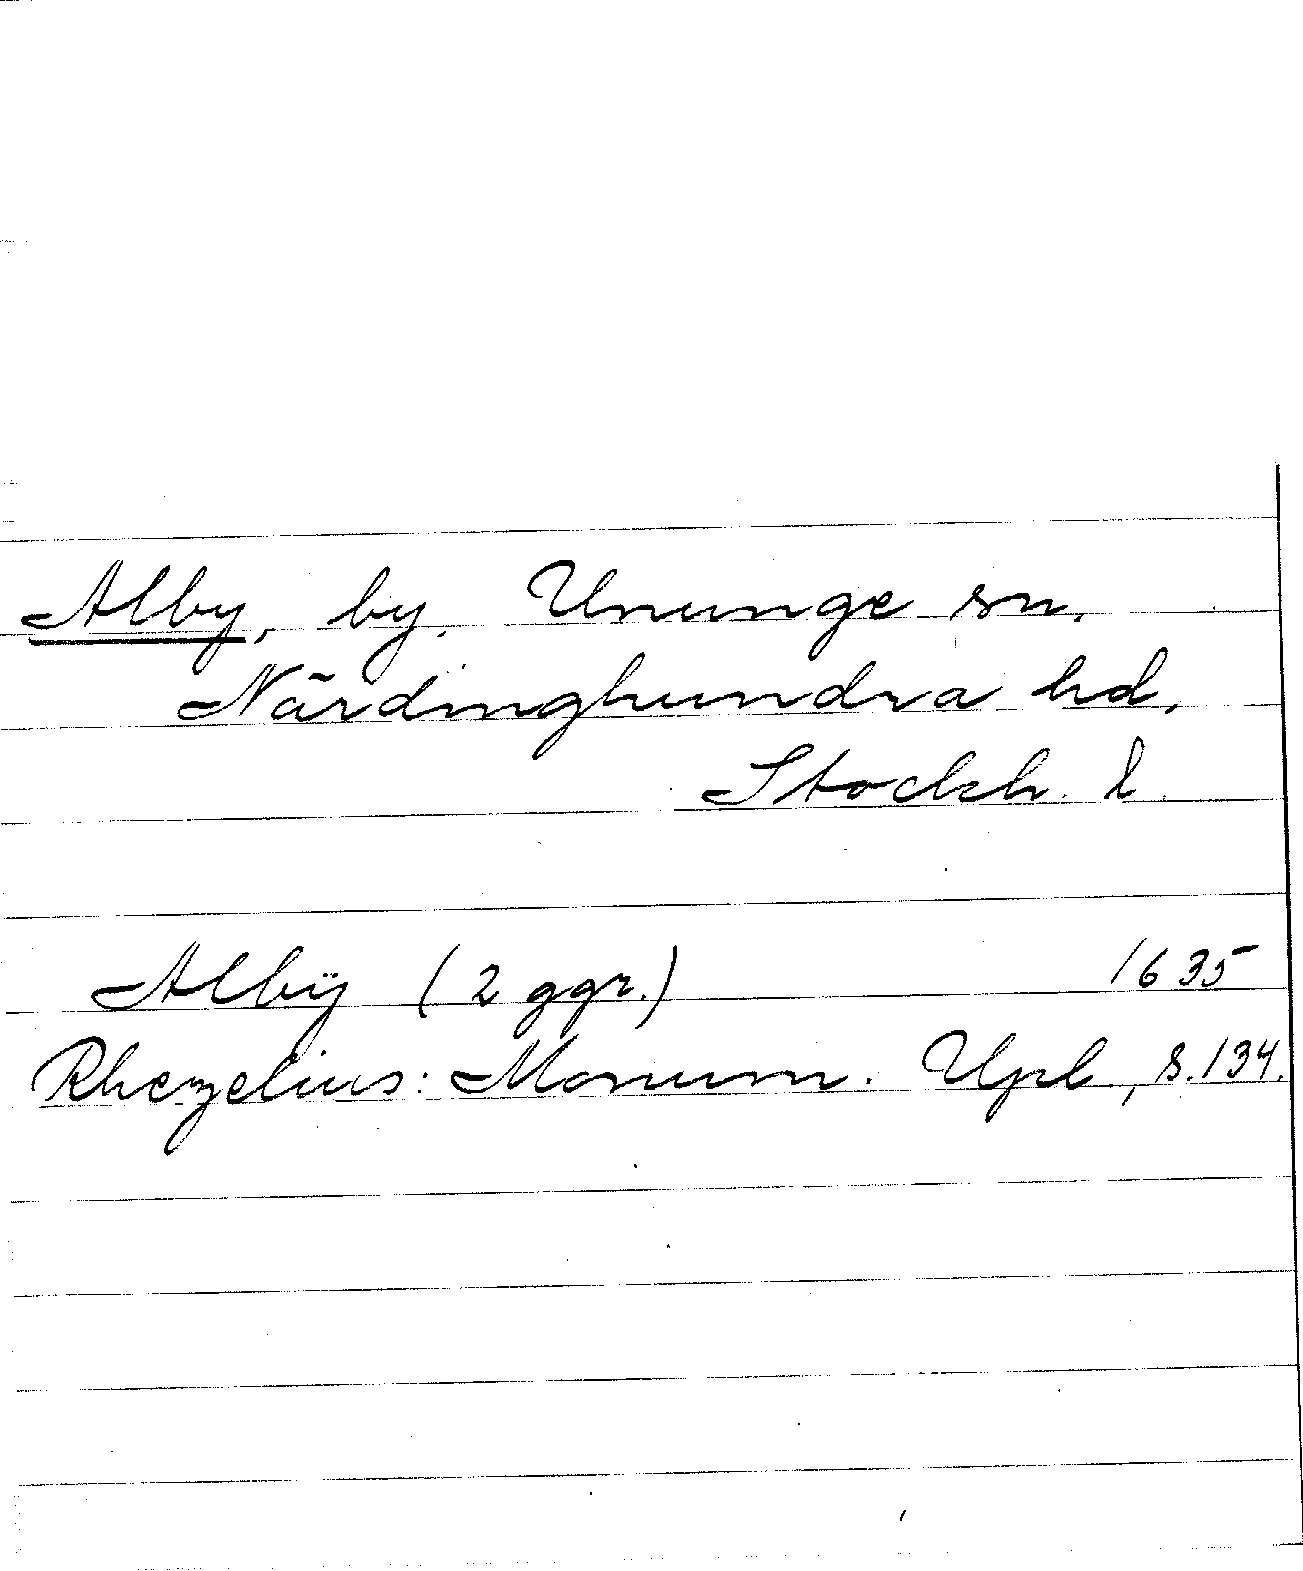 Alby, by. Ununge sn,
Närdinghundra hd,
Stockh. l.
Albÿ (2 ggr.) 1635
Rhezelius: Monum. Upl, s. 134.